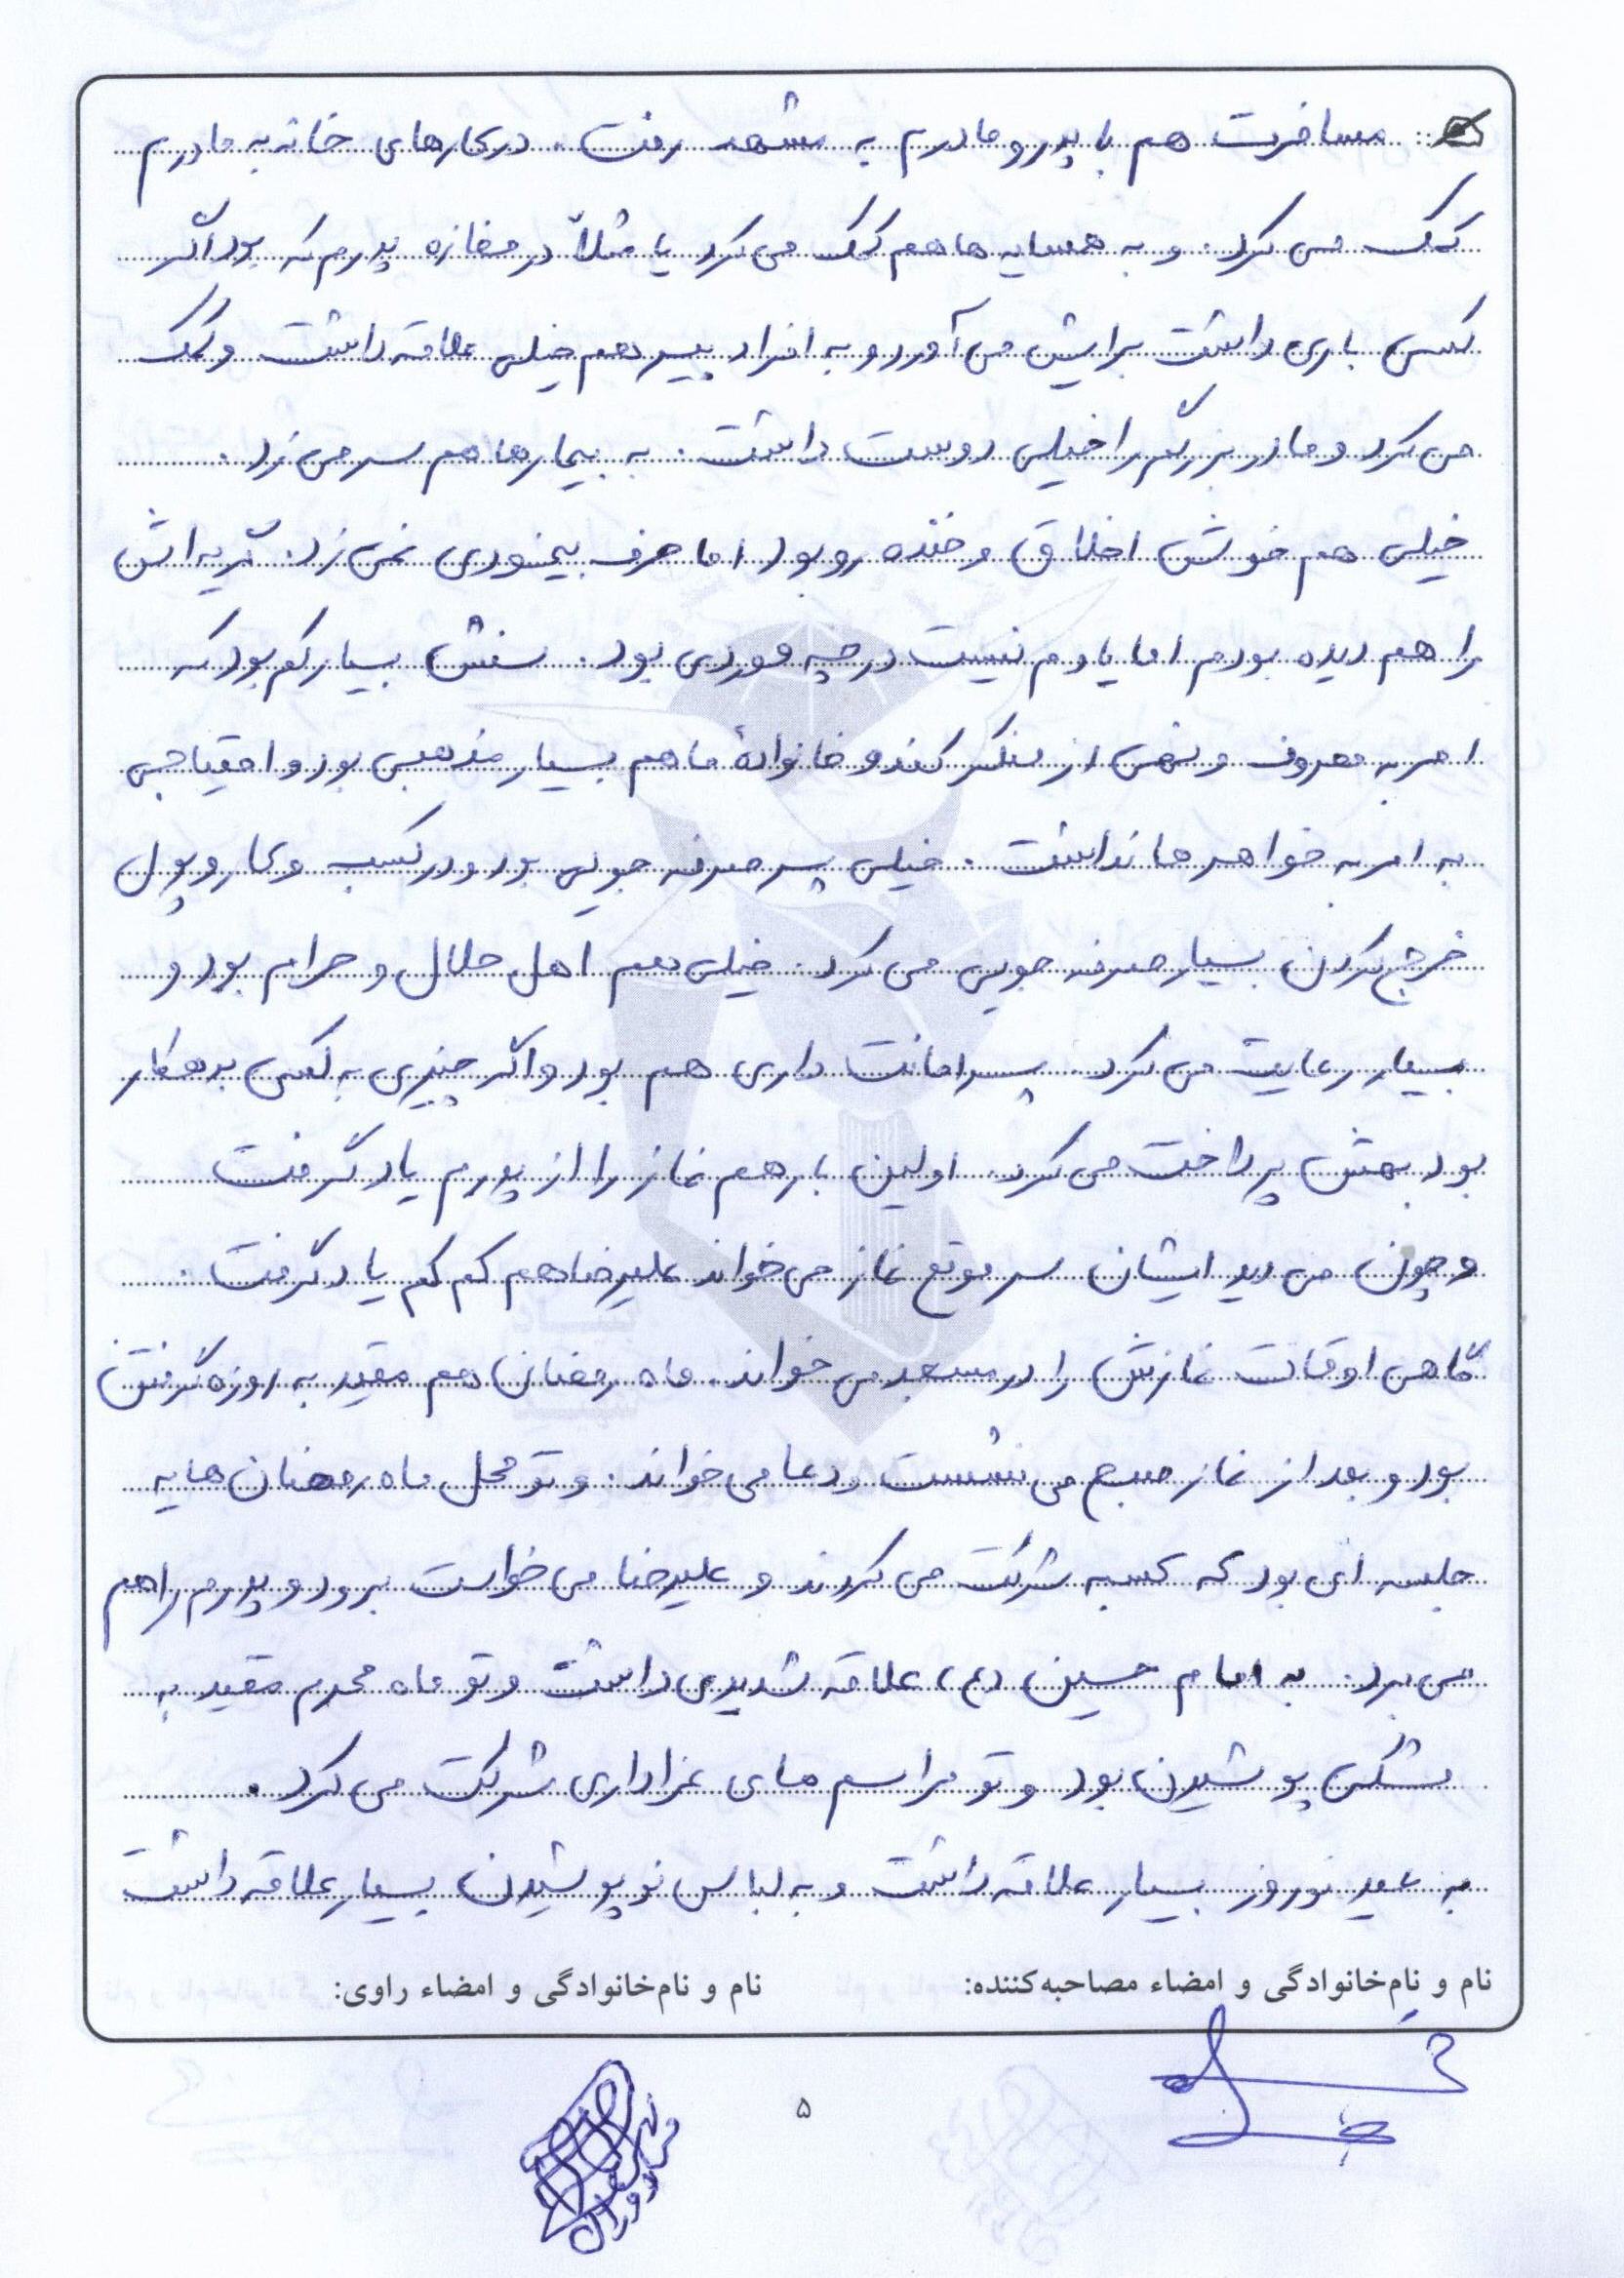 مسافرت هم با پدر و مادرم به مشهد رفت. در کارهای خانه به مادرم
کمک می کرد. و به همسایه ها هم کمک می کرد یا مثلاً در مغازه پدرم که بود اگر
کسی باری داشت برایش می آورد و به افراد پیر هم خیلی علاقه داشت و کمک
می کرد و مادر بزرگم را خیلی دوست داشت. به بیمارها هم سر می زد.
خیلی هم خوش اخلاق و خنده رو بود اما حرف بیخودی نمی زد. گریه اش
را هم دیده بودم اما یادم نیست در چه موردی بود. سنش بسیار کم بود که
امر به معروف و نهی از منکر کند و خانوادهٔ ما هم بسیار مذهبی بود و احتیاجی
به امر به خواهر ها نداشت. خیلی پسر صرفه جویی بود و در کسب و کار و پول
خرج کردن بسیار صرفه جویی می کرد. خیلی هم اهل حلال و حرام بود و
بسیار رعایت می کرد. پسر امانت داری هم بود و اگر چیزی به کسی بدهکار
بود بهش پرداخت می کرد. اولین بار هم نماز را از پدرم یاد گرفت
و چون می دید ایشان سر موقع نماز می خواند علیرضا هم کم کم یاد گرفت.
گاهی اوقات نمازش را در مسجد می خواند. ماه رمضان هم مقید به روزه گرفتن
بود و بعد از نماز صبح می نشست و دعا می خواند. و تو محل ماه رمضان ها یه
جلسه ای بود که کسبه شرکت می کردند و علیرضا می خواست برود و پدرم را هم
می برد. به امام حسین (ع) علاقه شدیدی داشت و تو ماه محرم مقید به
مشکی پوشیدن بود و تو مراسم های عزاداری شرکت می کرد.
به عید نوروز بسیار علاقه داشت و به لباس نو پوشیدن بسیار علاقه داشت
نام و نام‌خانوادگی و امضاء مصاحبه‌کننده: نام و نام‌خانوادگی و امضاء راوی:
۵